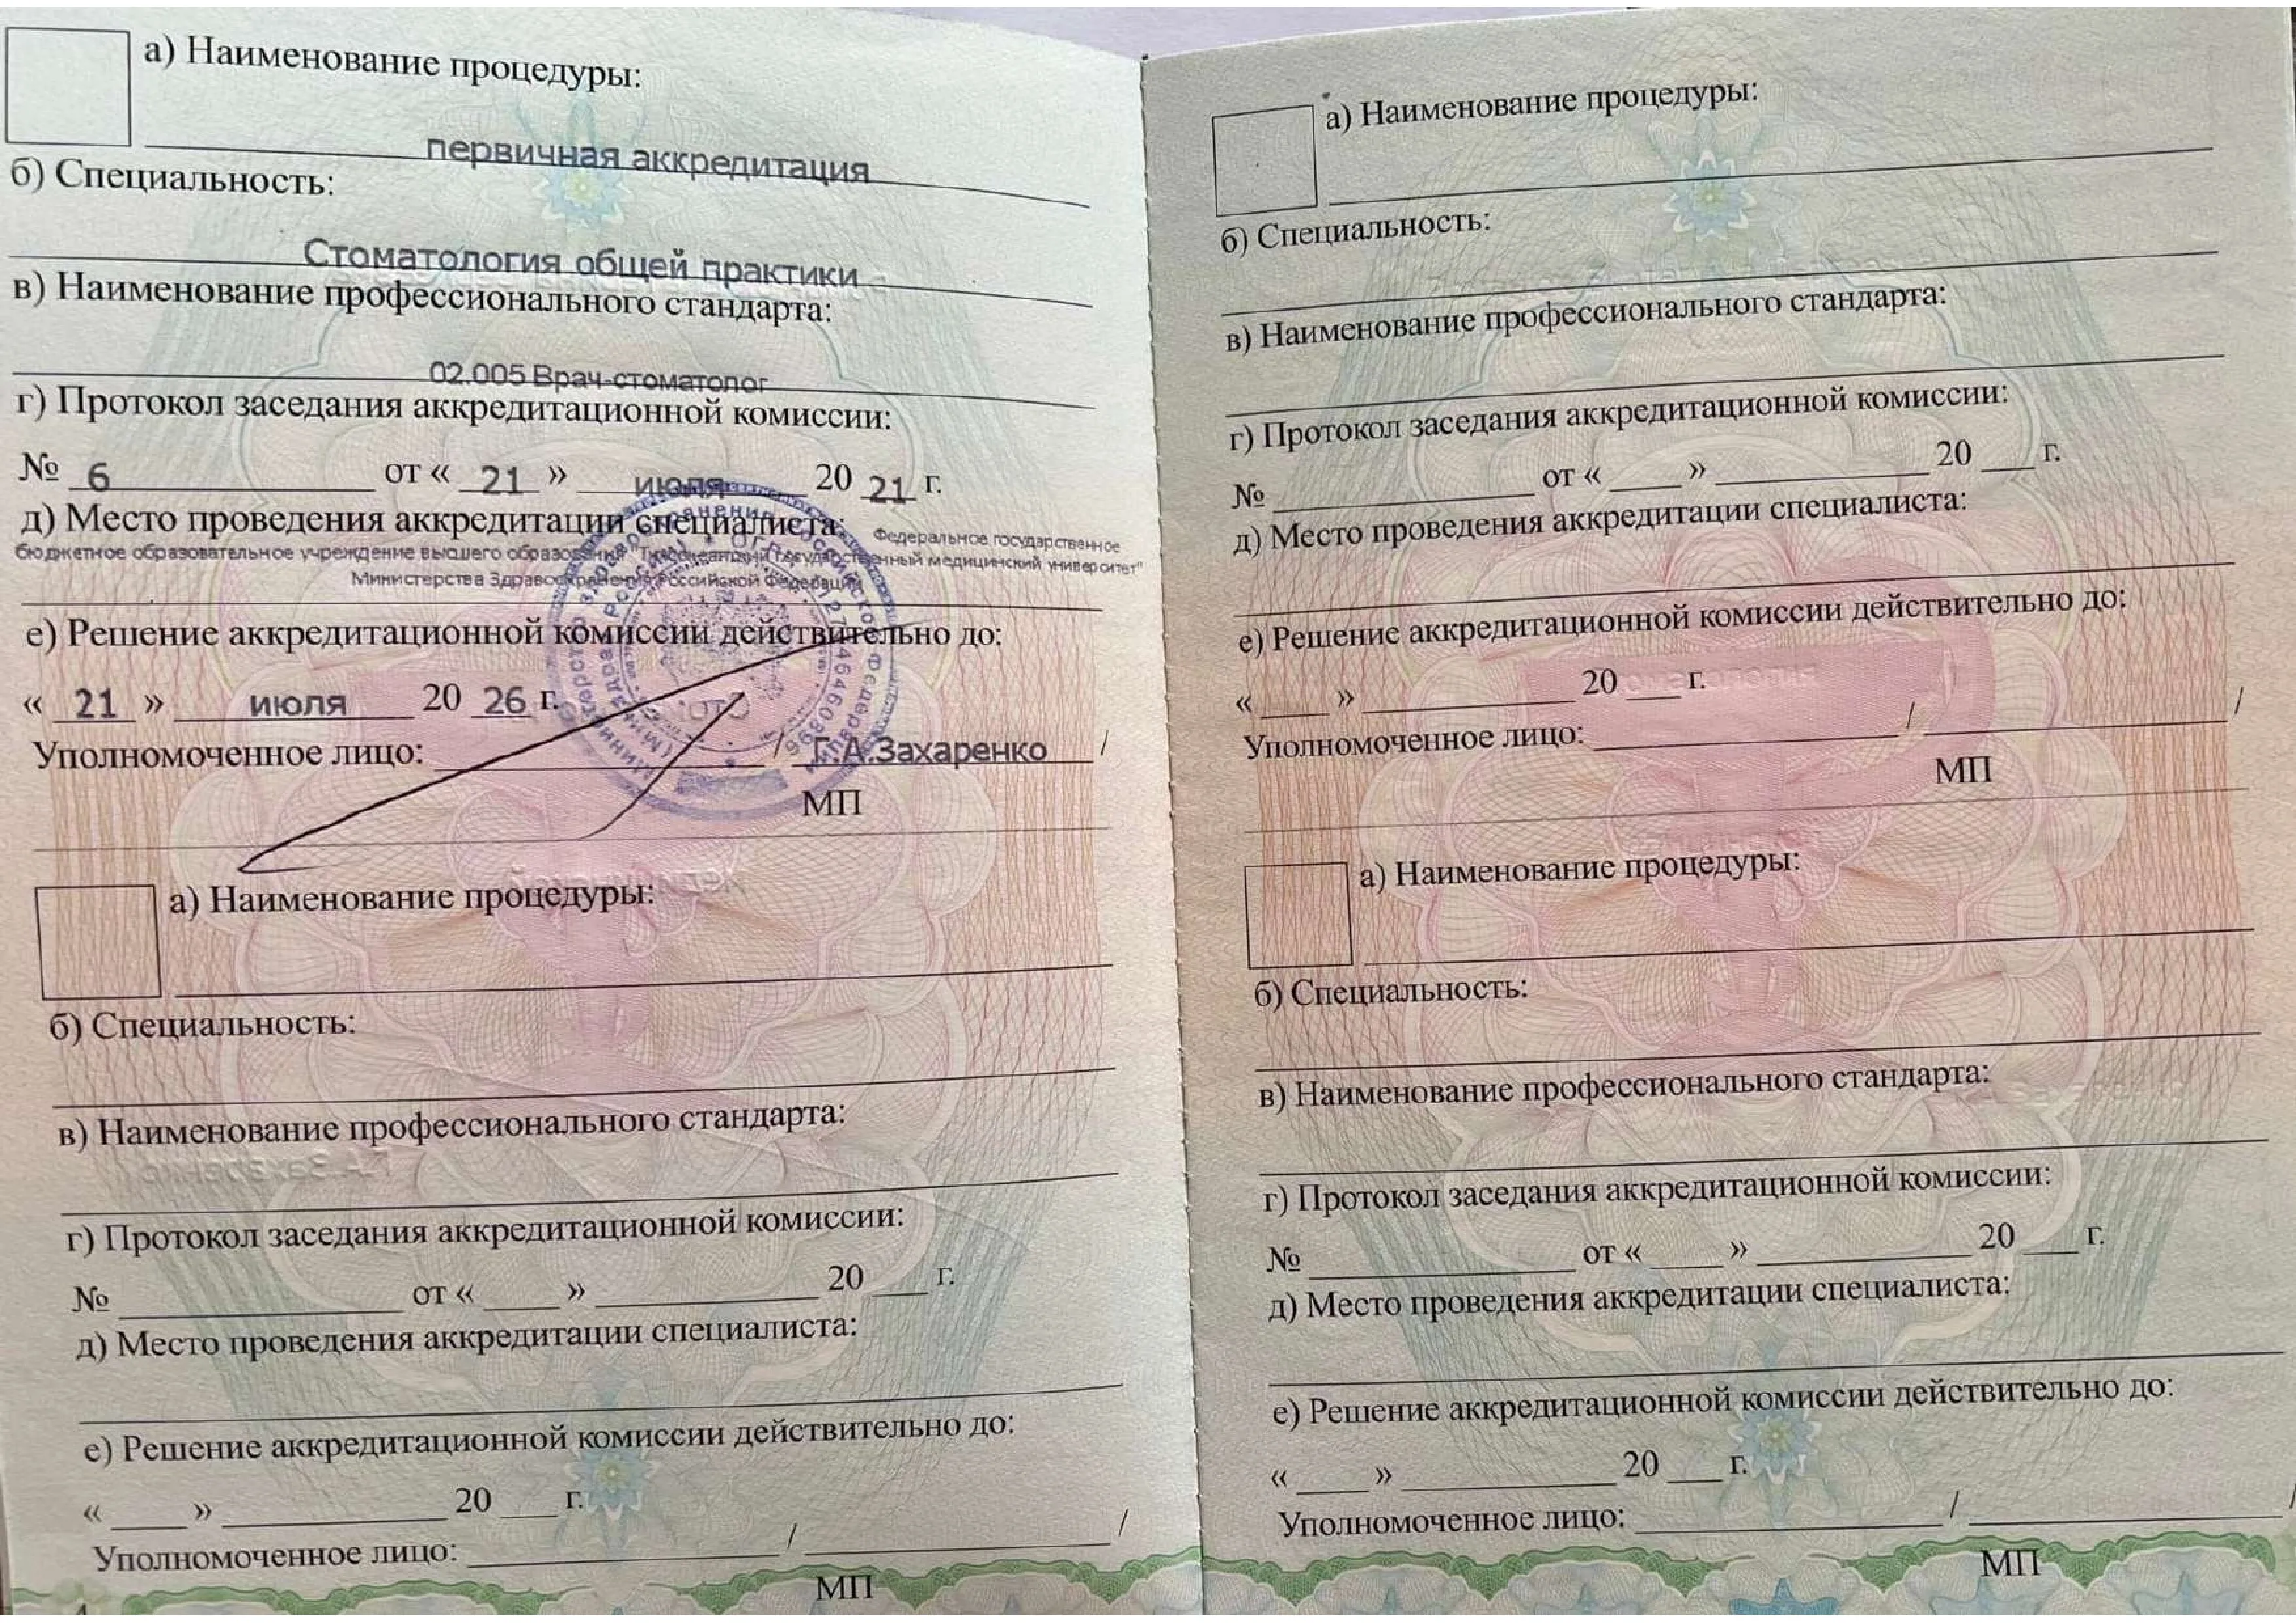 а) Наименование процедуры:
первичная аккредитация
б) Специальность:
Стоматология общей практики
в) Наименование профессионального стандарта:
02.005 Врач-стоматолог
г) Протокол заседания аккредитационной комиссии:
№ 6 от « 21 » июля 20 21 г.
д) Место проведения аккредитации специалиста:
Федеральное государственное
бюджетное образовательное учреждение высшего образования "Тихоокеанский государственный медицинский университет"
Министерства Здравоохранения Российской Федерации
е) Решение аккредитационной комиссии действительно до:
« 21 » июля 20 26 г.
Уполномоченное лицо: / Г.А.Захаренко /
МП
а) Наименование процедуры:
б) Специальность:
в) Наименование профессионального стандарта:
г) Протокол заседания аккредитационной комиссии:
№ от « » 20 г.
д) Место проведения аккредитации специалиста:
е) Решение аккредитационной комиссии действительно до:
« » 20 г.
Уполномоченное лицо: / /
МП
а) Наименование процедуры:
б) Специальность:
в) Наименование профессионального стандарта:
г) Протокол заседания аккредитационной комиссии:
№ от « » 20 г.
д) Место проведения аккредитации специалиста:
е) Решение аккредитационной комиссии действительно до:
« » 20 г.
Уполномоченное лицо: / /
МП
а) Наименование процедуры:
б) Специальность:
в) Наименование профессионального стандарта:
г) Протокол заседания аккредитационной комиссии:
№ от « » 20 г.
д) Место проведения аккредитации специалиста:
е) Решение аккредитационной комиссии действительно до:
« » 20 г.
Уполномоченное лицо: / /
МП